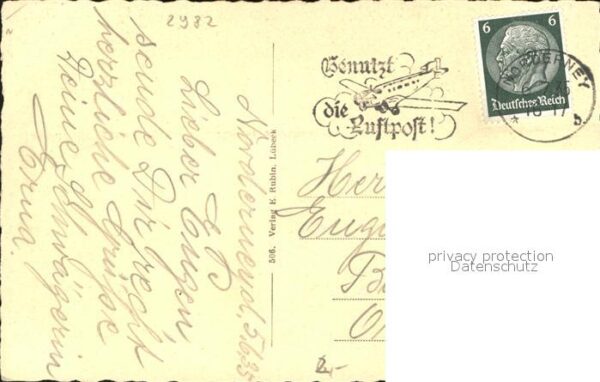 2982
Norderney, 5.6.35
Lieber Eugen!
sende Dir recht
herzliche Grüße
Deine Schwägerin
Erna.
506. Verlag E. Rubin, Lübeck
Benutzt
die
Luftpost!
6 6
Deutsches Reich
NORDERNEY
Her
Euge
privacy protection
Datenschutz
2,-